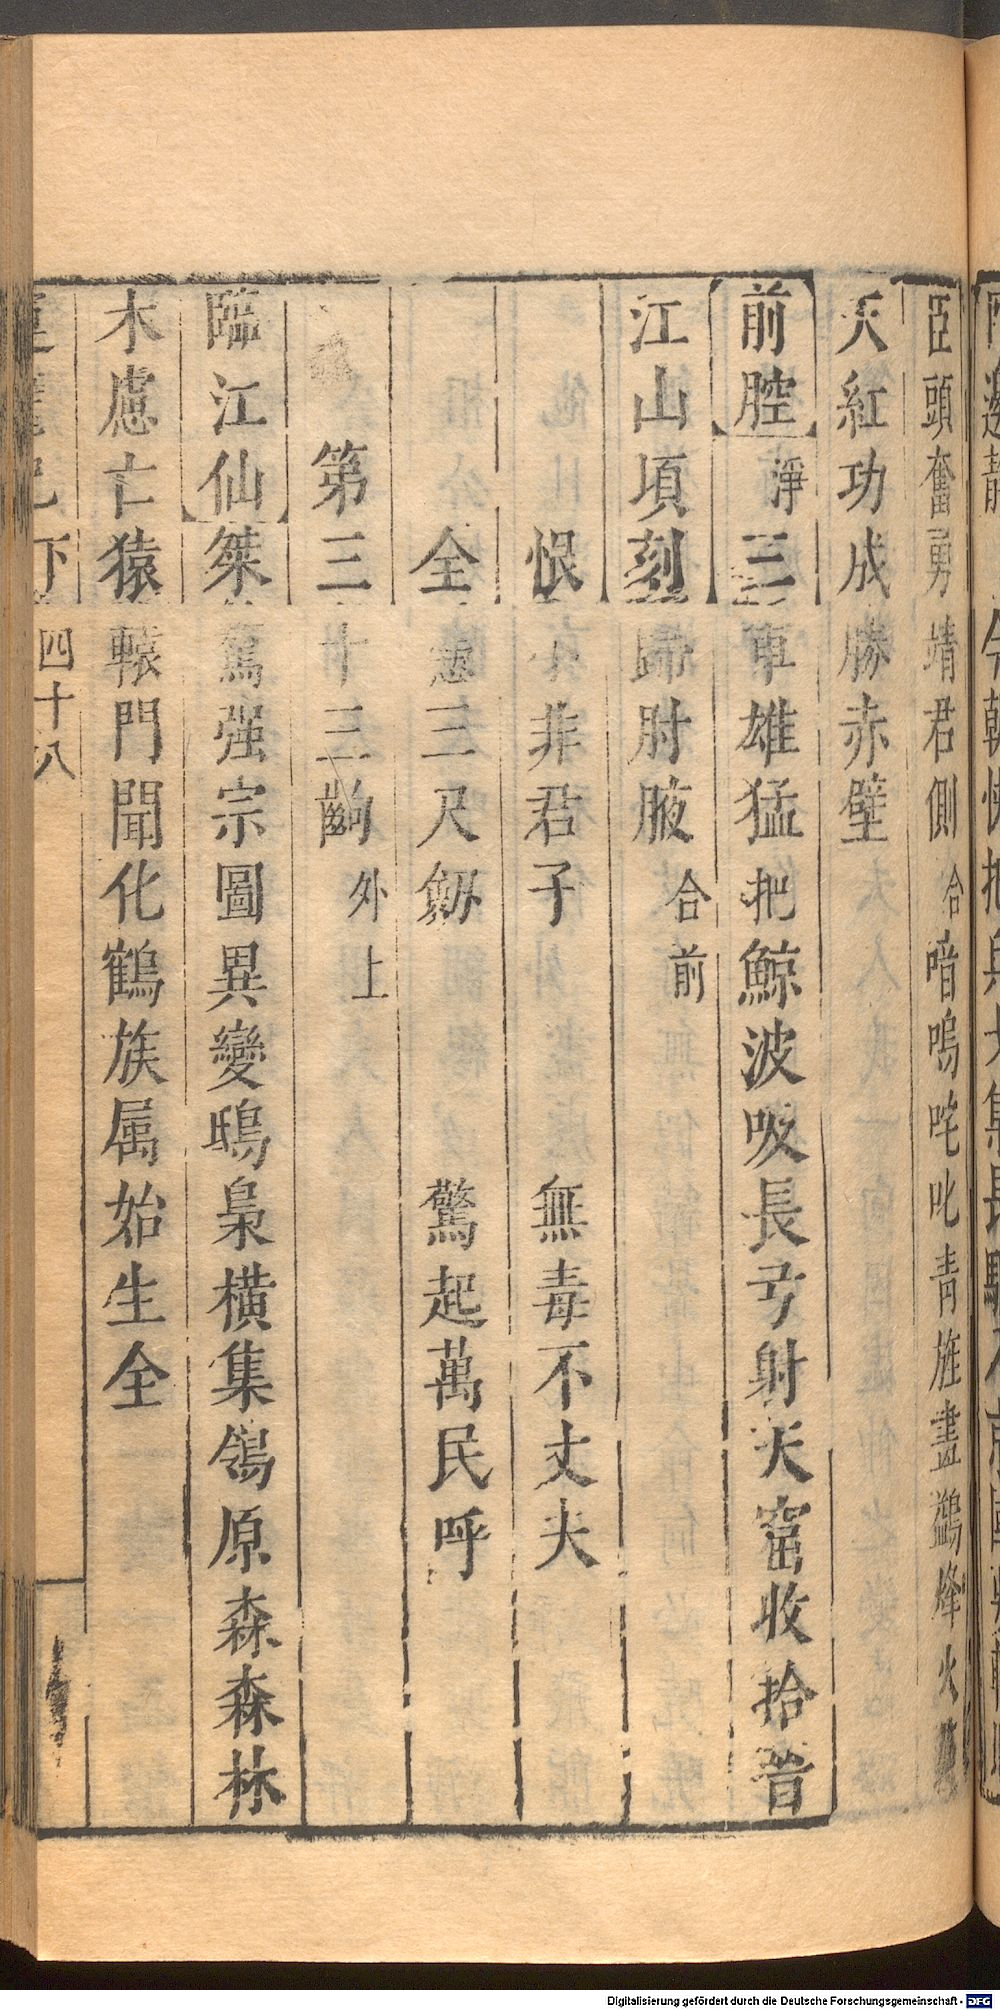 臣頭奮勇靖君側合喑嗚咤叱青旌畫鷁烽火
天紅功成勝赤壁
前腔淨三軍雄猛把鯨波吸長弓射天窩收拾昔
江山頃刻歸肘腋合前
恨非君子無毒不丈夫
全憑三尺劒驚起萬民呼
第三十三齣外上
臨江仙桀驁强宗圖異變鴟梟橫集鴒原森森林
木慮亡猿轅門聞化鶴族属始生全
下四十八
Digitalisierung gefördert durch die Deutsche Forschungsgemeinschaft - DFG